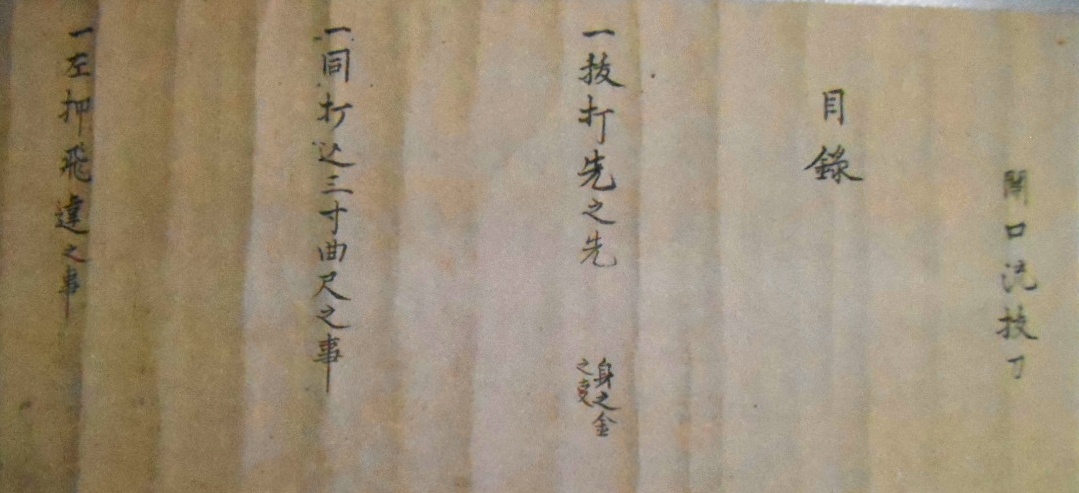 關口流抜刀
目錄
一抜打先之先
身之金
之事
一同打込三寸曲尺之事
一左押飛違之事